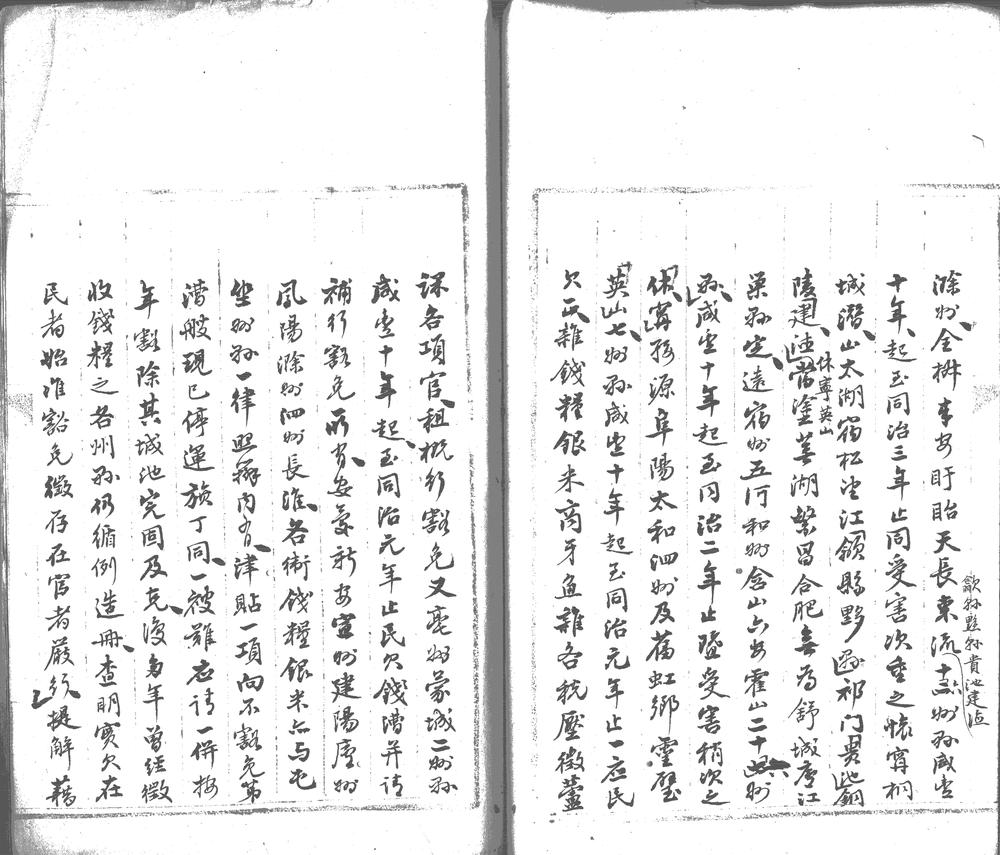 滁州全椒來安盱眙天長東流十四州縣咸豐
歙縣黟縣貴池建德
十年起至同治三年止同受害次重之懷寧桐
城潛山太湖宿松望江績谿黟縣祁門貴池銅
陵建德當塗蕪湖繁昌合肥無為舒城廬江
休寧英山
巢縣定遠宿州五河和州含山六安霍山二十州
縣咸豐十年起至同治二年止暨受害稍次之
休寧婺源阜陽太和泗州及舊虹鄉靈璧
英山七州縣咸豐十年起至同治元年止一應民
欠正雜錢糧銀米商牙魚雜各稅壓徵蘆
課各項官租概行豁免又亳州蒙城二州縣
咸豐十年起至同治元年止民欠錢漕并請
補行豁免所有安慶新安宣州建陽廬州
鳳陽滁州泗州長淮各衛錢糧銀米亦與屯
坐州縣一律照辦內有津貼一項向不豁免第
漕艘現已停運旗丁同一被難應請一併按
年豁除其城池完固及克復多年曾經徵
收錢糧之各州縣仍循例造冊查明實欠在
民者始准豁免徵存在官者嚴行提解藉